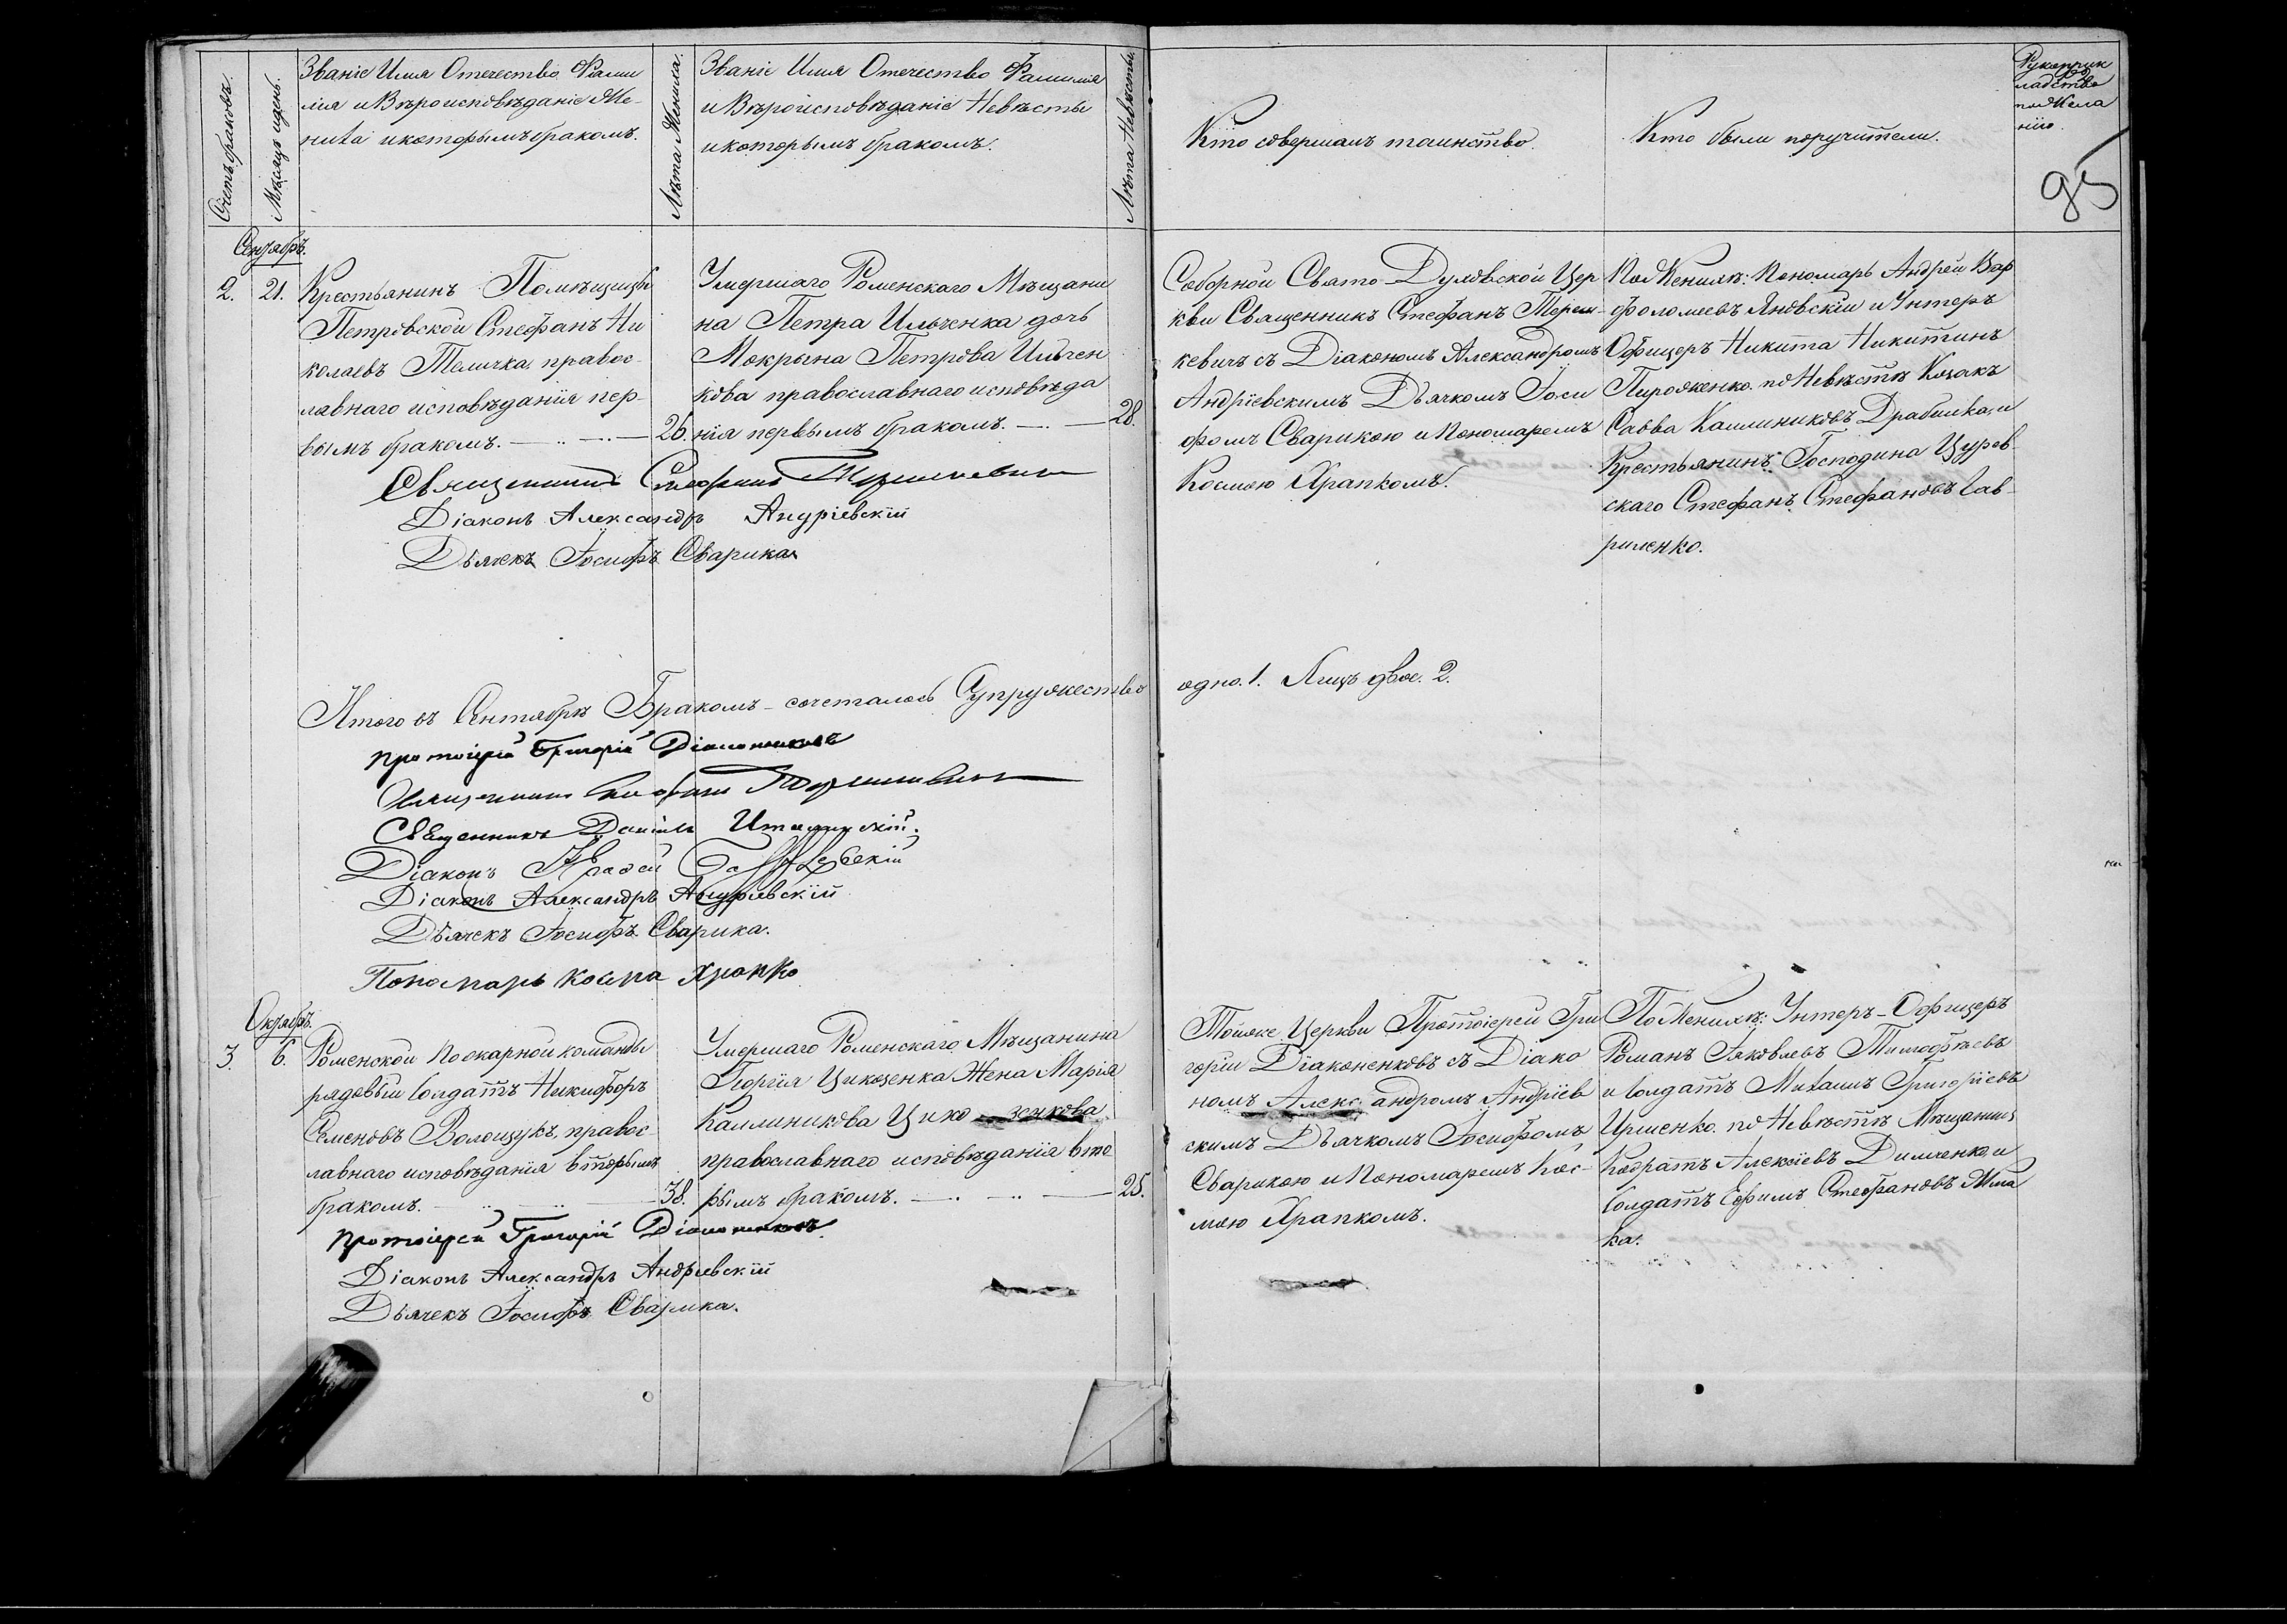 Счетъ браковъ.
Мѣсяцъ и день.
Званіе Имя Отечество Фами
лия и Вѣроисповѣданіе Же-
ниха и которымъ бракомъ.
Лѣта Жениха.
Званіе Имя Отечество Фамилия
и Вѣроисповѣданіе Невѣсты
и которымъ бракомъ.
Лѣта Невѣсты.
Кто совершалъ таинство.
Кто были поручители.
Рукоприк
ладство
по жела
нію.
95
Сентябрь.
2. 21.
Крестьянинъ Помѣщицы
Петровской Стефанъ Ни
колаевъ Теличка, правос-
лавнаго исповѣданія пер-
вымъ бракомъ. 26.
Умершаго Роменскаго Мѣщани
на Петра Ильченка дочь
Мокрына Петрова Ильчен
кова православнаго исповѣда
нія первымъ бракомъ. 28.
Соборной Свято-Духовской Цер
кви Священникъ Стефанъ Тереш-
кевичъ съ Діакономъ Александромъ
Андріевскимъ Дьячкомъ Іоси
фомъ Сварикою и Пономаремъ
Космою Храпкомъ.
По Женихѣ: Пономарь Андрей Вар
фоломеевъ Яновскій и Унтеръ
Офицеръ Никита Никитинъ
Пироженко. по Невѣстѣ Козакъ
Савва Каллиниковъ Драбинка, и
Крестьянинъ Господина Цуров-
скаго Стефанъ Стефановъ Гав-
риленко.
Священникъ Стефанъ Терешкевичъ
Діаконъ Александръ Андріевскій
Дьячекъ Іосифъ Сварика
Итого въ Сентябрѣ Бракомъ сочеталось Супружество одно. 1. Лицъ двое. 2.
Протоіерей Григорій Діаконенковъ
Священникъ Стефанъ Терешкевичъ
Священникъ Даніилъ
Діаконъ
Діаконъ Александръ Андріевскій
Дьячекъ Іосифъ Сварика.
Пономарь Косма Храпко
Октябрь.
3. 6.
Роменской Пожарной команды
рядовый Солдатъ Никифоръ
Семеновъ Волощукъ, правос-
лавнаго исповѣданія вторымъ
бракомъ. 38.
Умершаго Роменскаго Мѣщанина
Георгія Цикозенка Жена Марія
Каллиникова Цико зенкова
православнаго исповѣданія вто
рымъ бракомъ. 25.
Тойже Церкви Протоіерей Гри
горій Діаконенковъ съ Діако
номъ Александромъ Андріев
скимъ Дьячкомъ Іосифомъ
Сварикою и Пономаремъ Кос-
мою Храпкомъ.
По Женихѣ: Унтеръ-Офицеръ
Романъ Яковлевъ Тимофѣевъ
и Солдатъ Михаилъ Григоріевъ
Ирменко. по Невѣстѣ Мѣщанинъ
Кодратъ Алексіевъ Димченко, и
Солдатъ Ефимъ Стефановъ
ка.
Протоіерей Григорій Діаконенковъ.
Діаконъ Александръ Андріевскій
Дьячекъ Іосифъ Сварика.